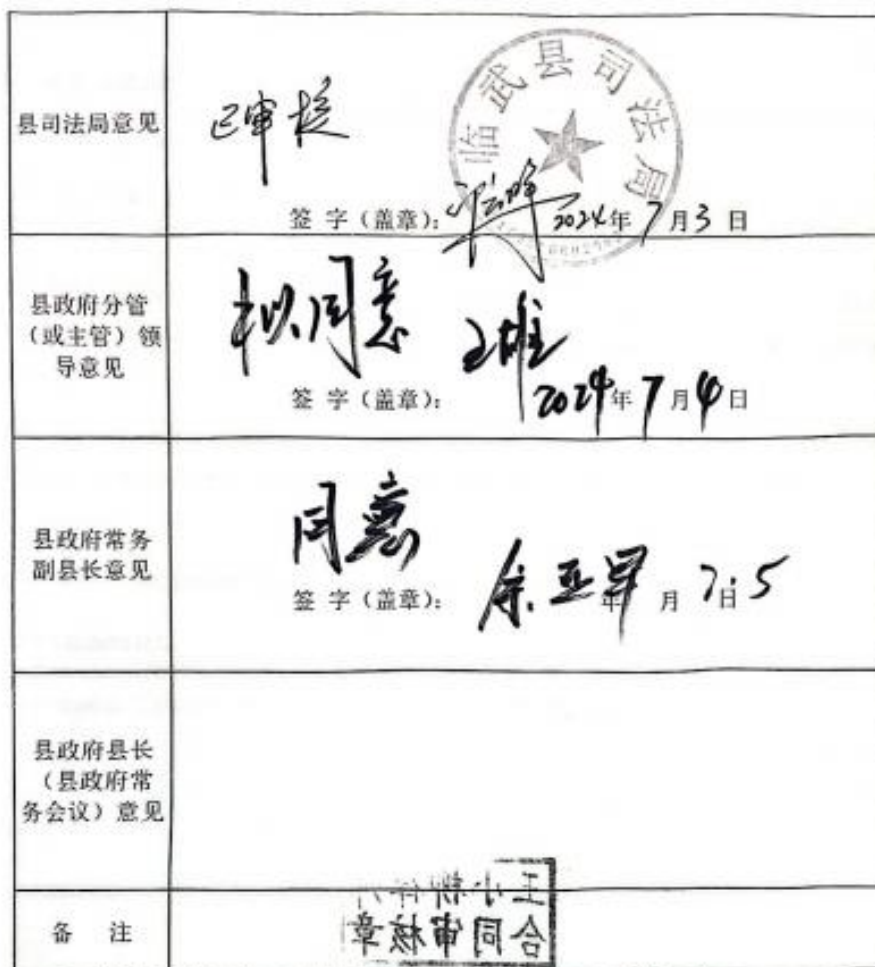 临武县司法局
县司法局意见
已审核
签 字（盖章）： 2024年 7月3 日
县政府分管
（或主管）领
导意见
拟同意
王雄
签 字（盖章）： 2024年 7月4日
县政府常务
副县长意见
同意
签 字（盖章）： 年 月 日 7.5
县政府县长
（县政府常
务会议）意见
备 注
合同审核章